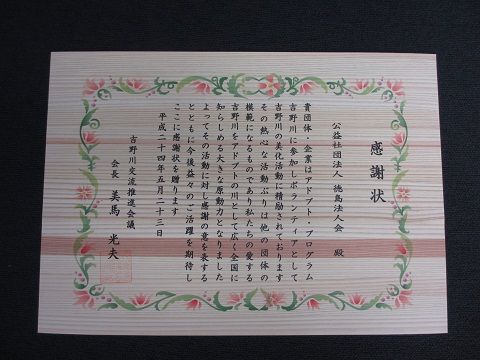 感謝状
公益社団法人 徳島法人会 殿
貴団体・企業はアドプト・プログラム
吉野川に参加しボランティアとして
吉野川の美化活動に精励されております
その熱心な活動ぶりは他の団体の
模範になるものであり私たちの愛する
吉野川をアドプトの川として広く全国に
知らしめる大きな原動力となりました
よってその活動に対し感謝の意を表する
とともに今後益々のご活躍を期待し
ここに感謝状を贈ります
平成二十四年五月二十三日
吉野川交流推進会議
会長 美馬 光夫